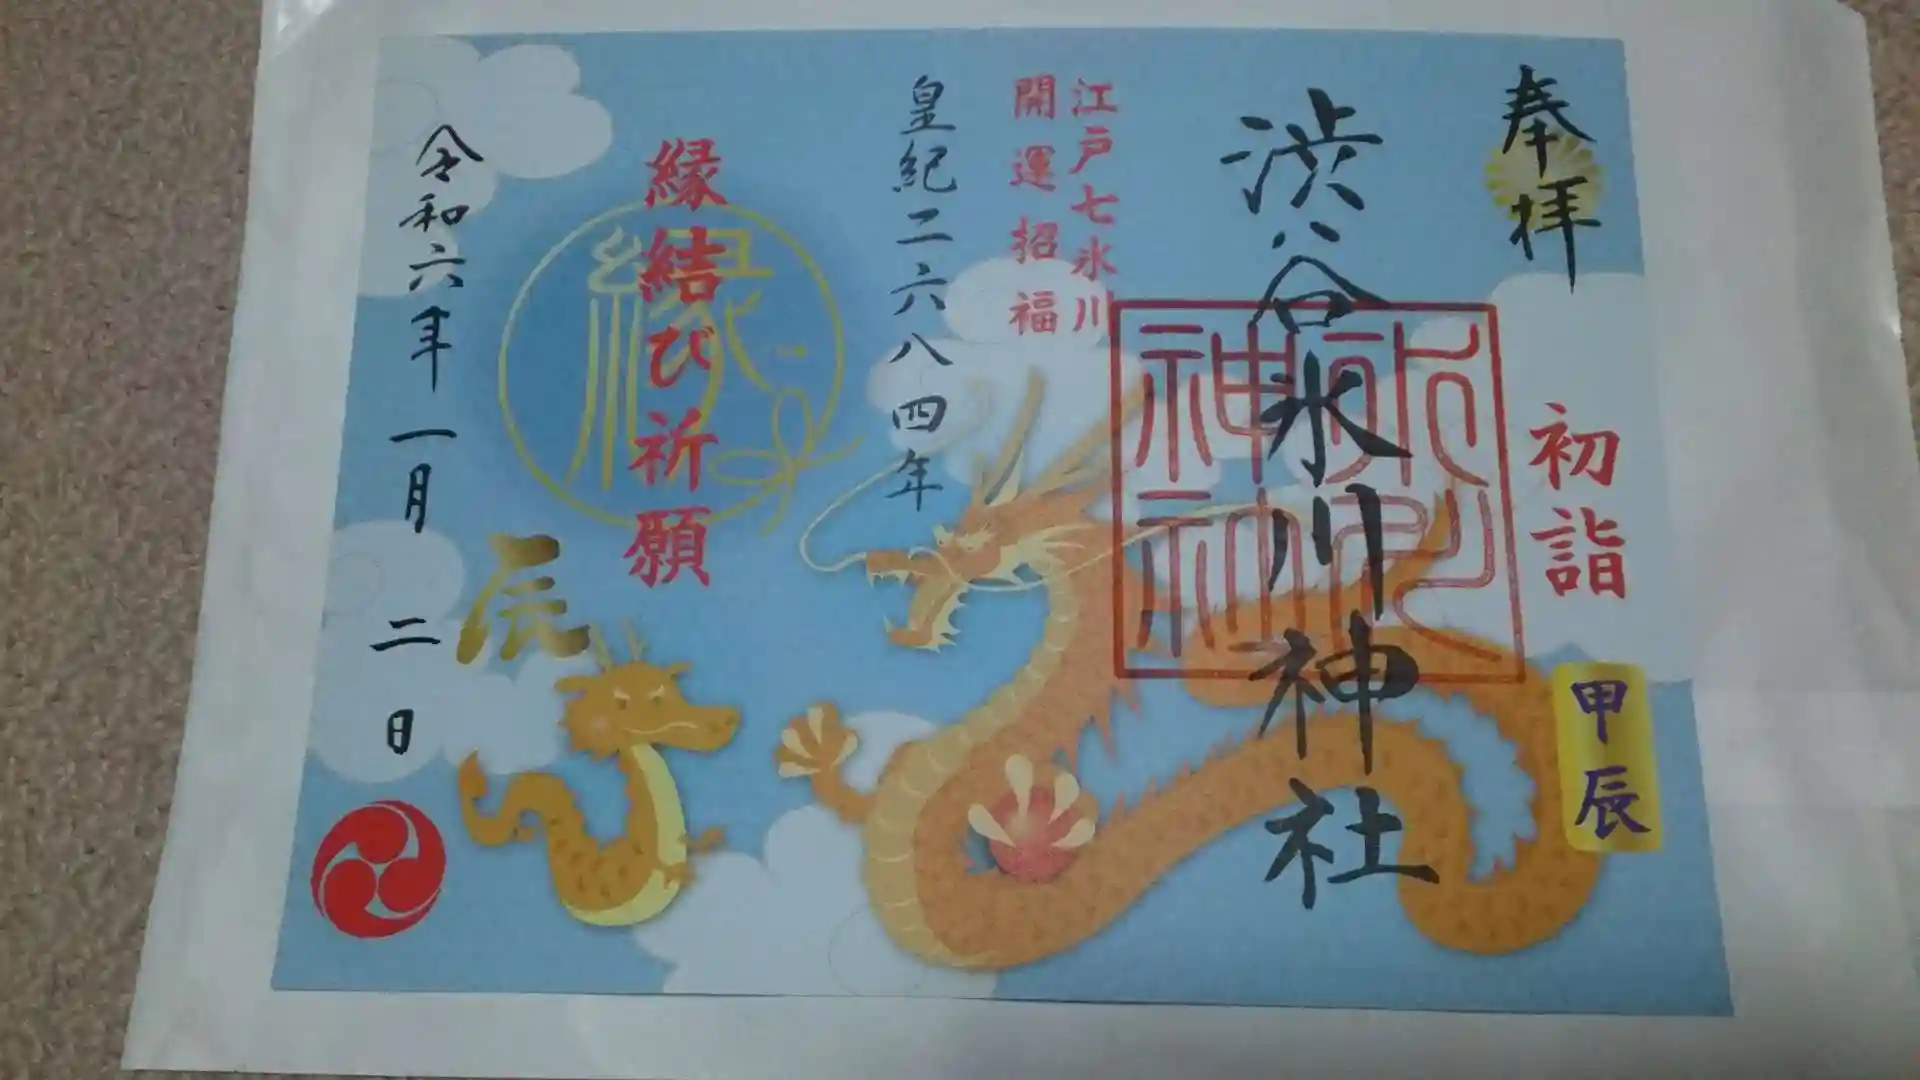 奉拝
初詣
甲辰
渋谷氷川神社
氷川
神社
江戸七氷川
開運招福
皇紀二六八四年
縁結び祈願
縁
辰
令和六年一月二日